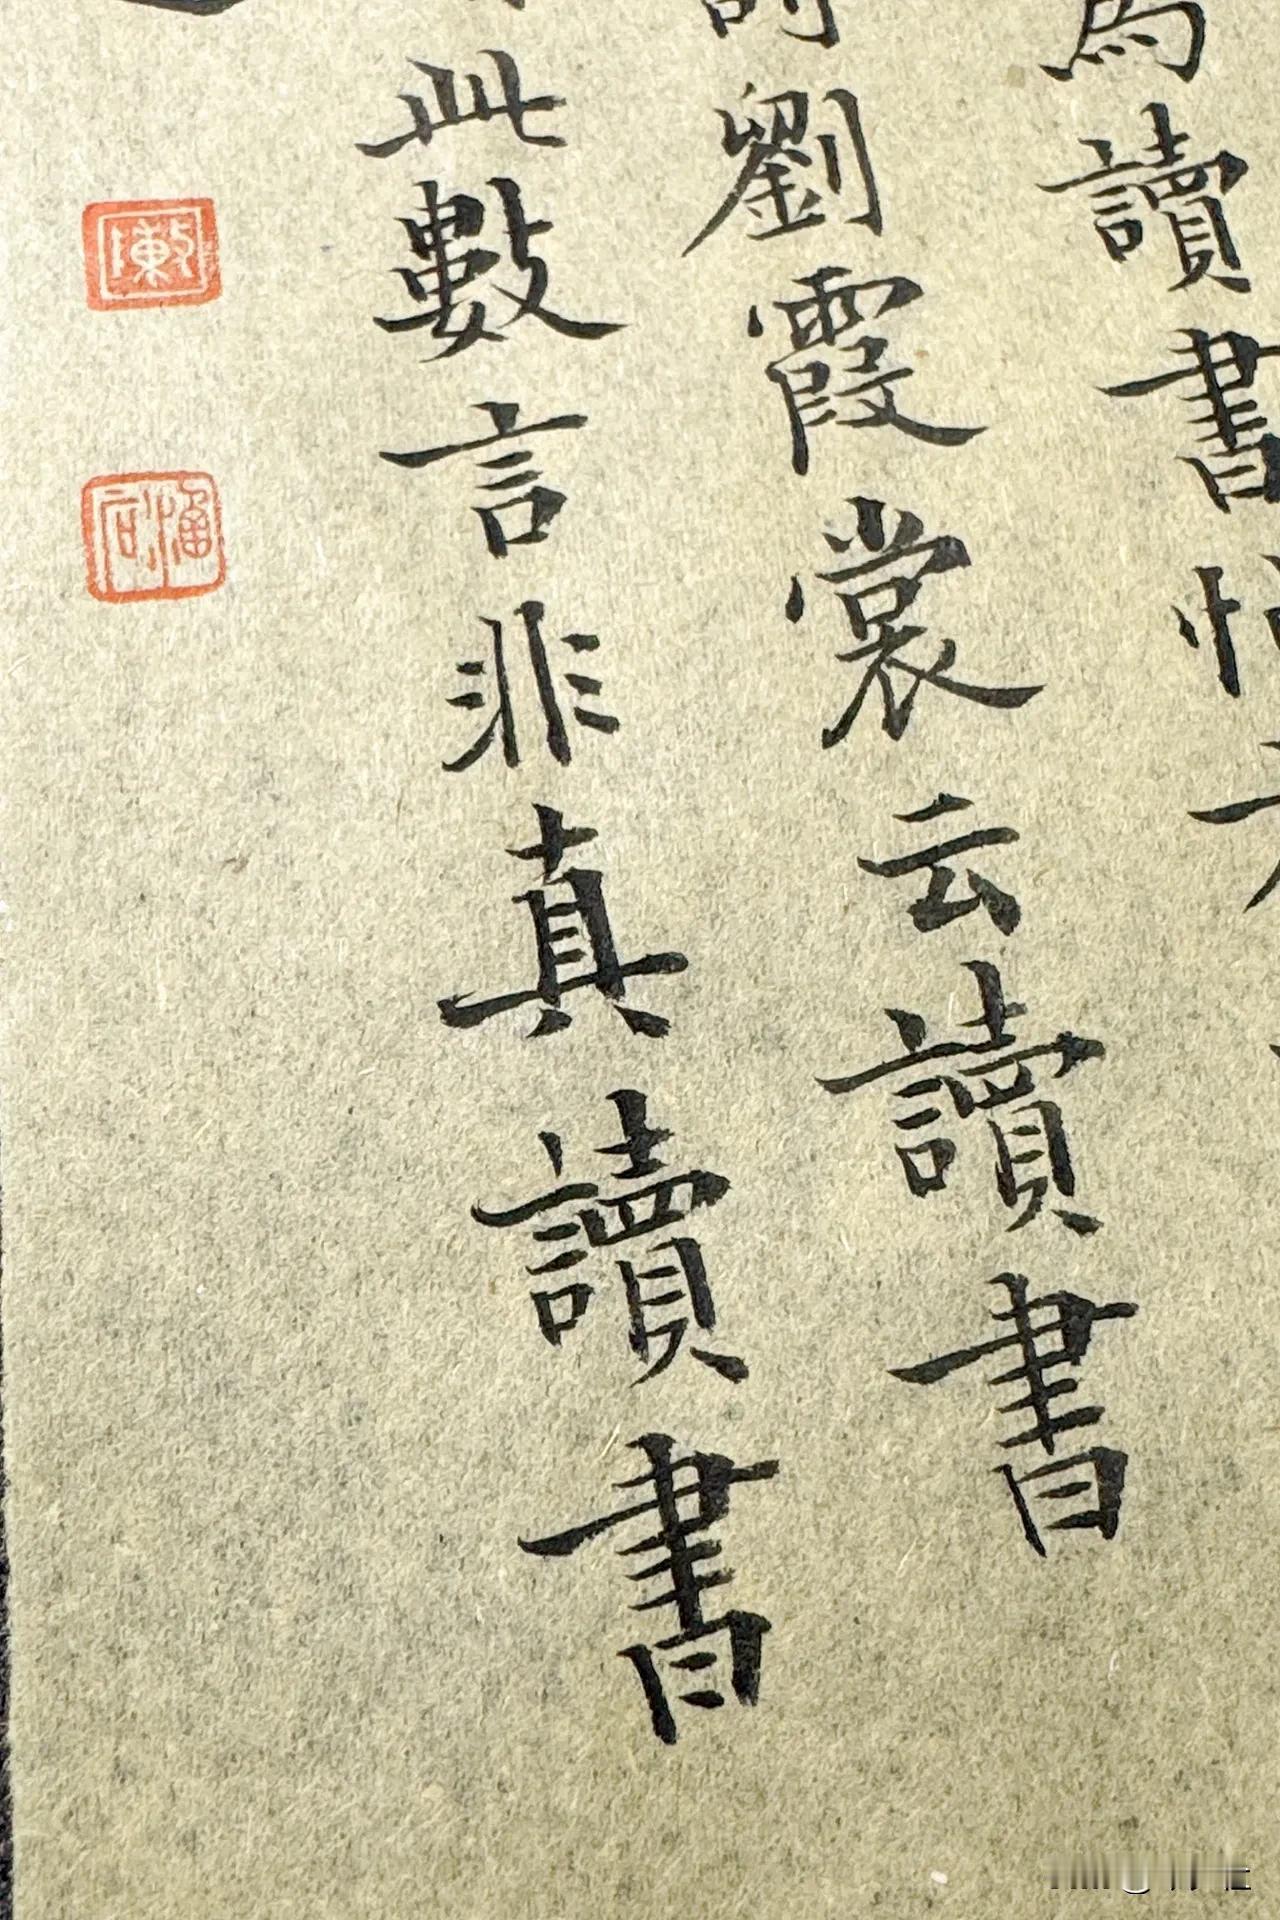 為讀書
詩劉霞裳云讀書
此數言非真讀書